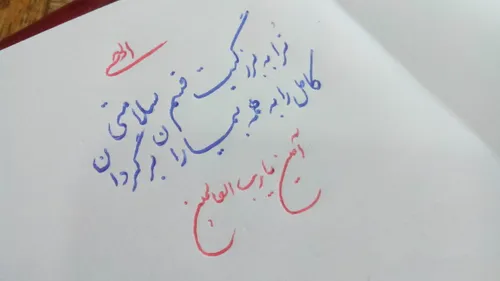 الهی
تو را به بزرگیت قسم سلامتی
کامل را به همه بیماران برگردان
آمین یا رب العالمین